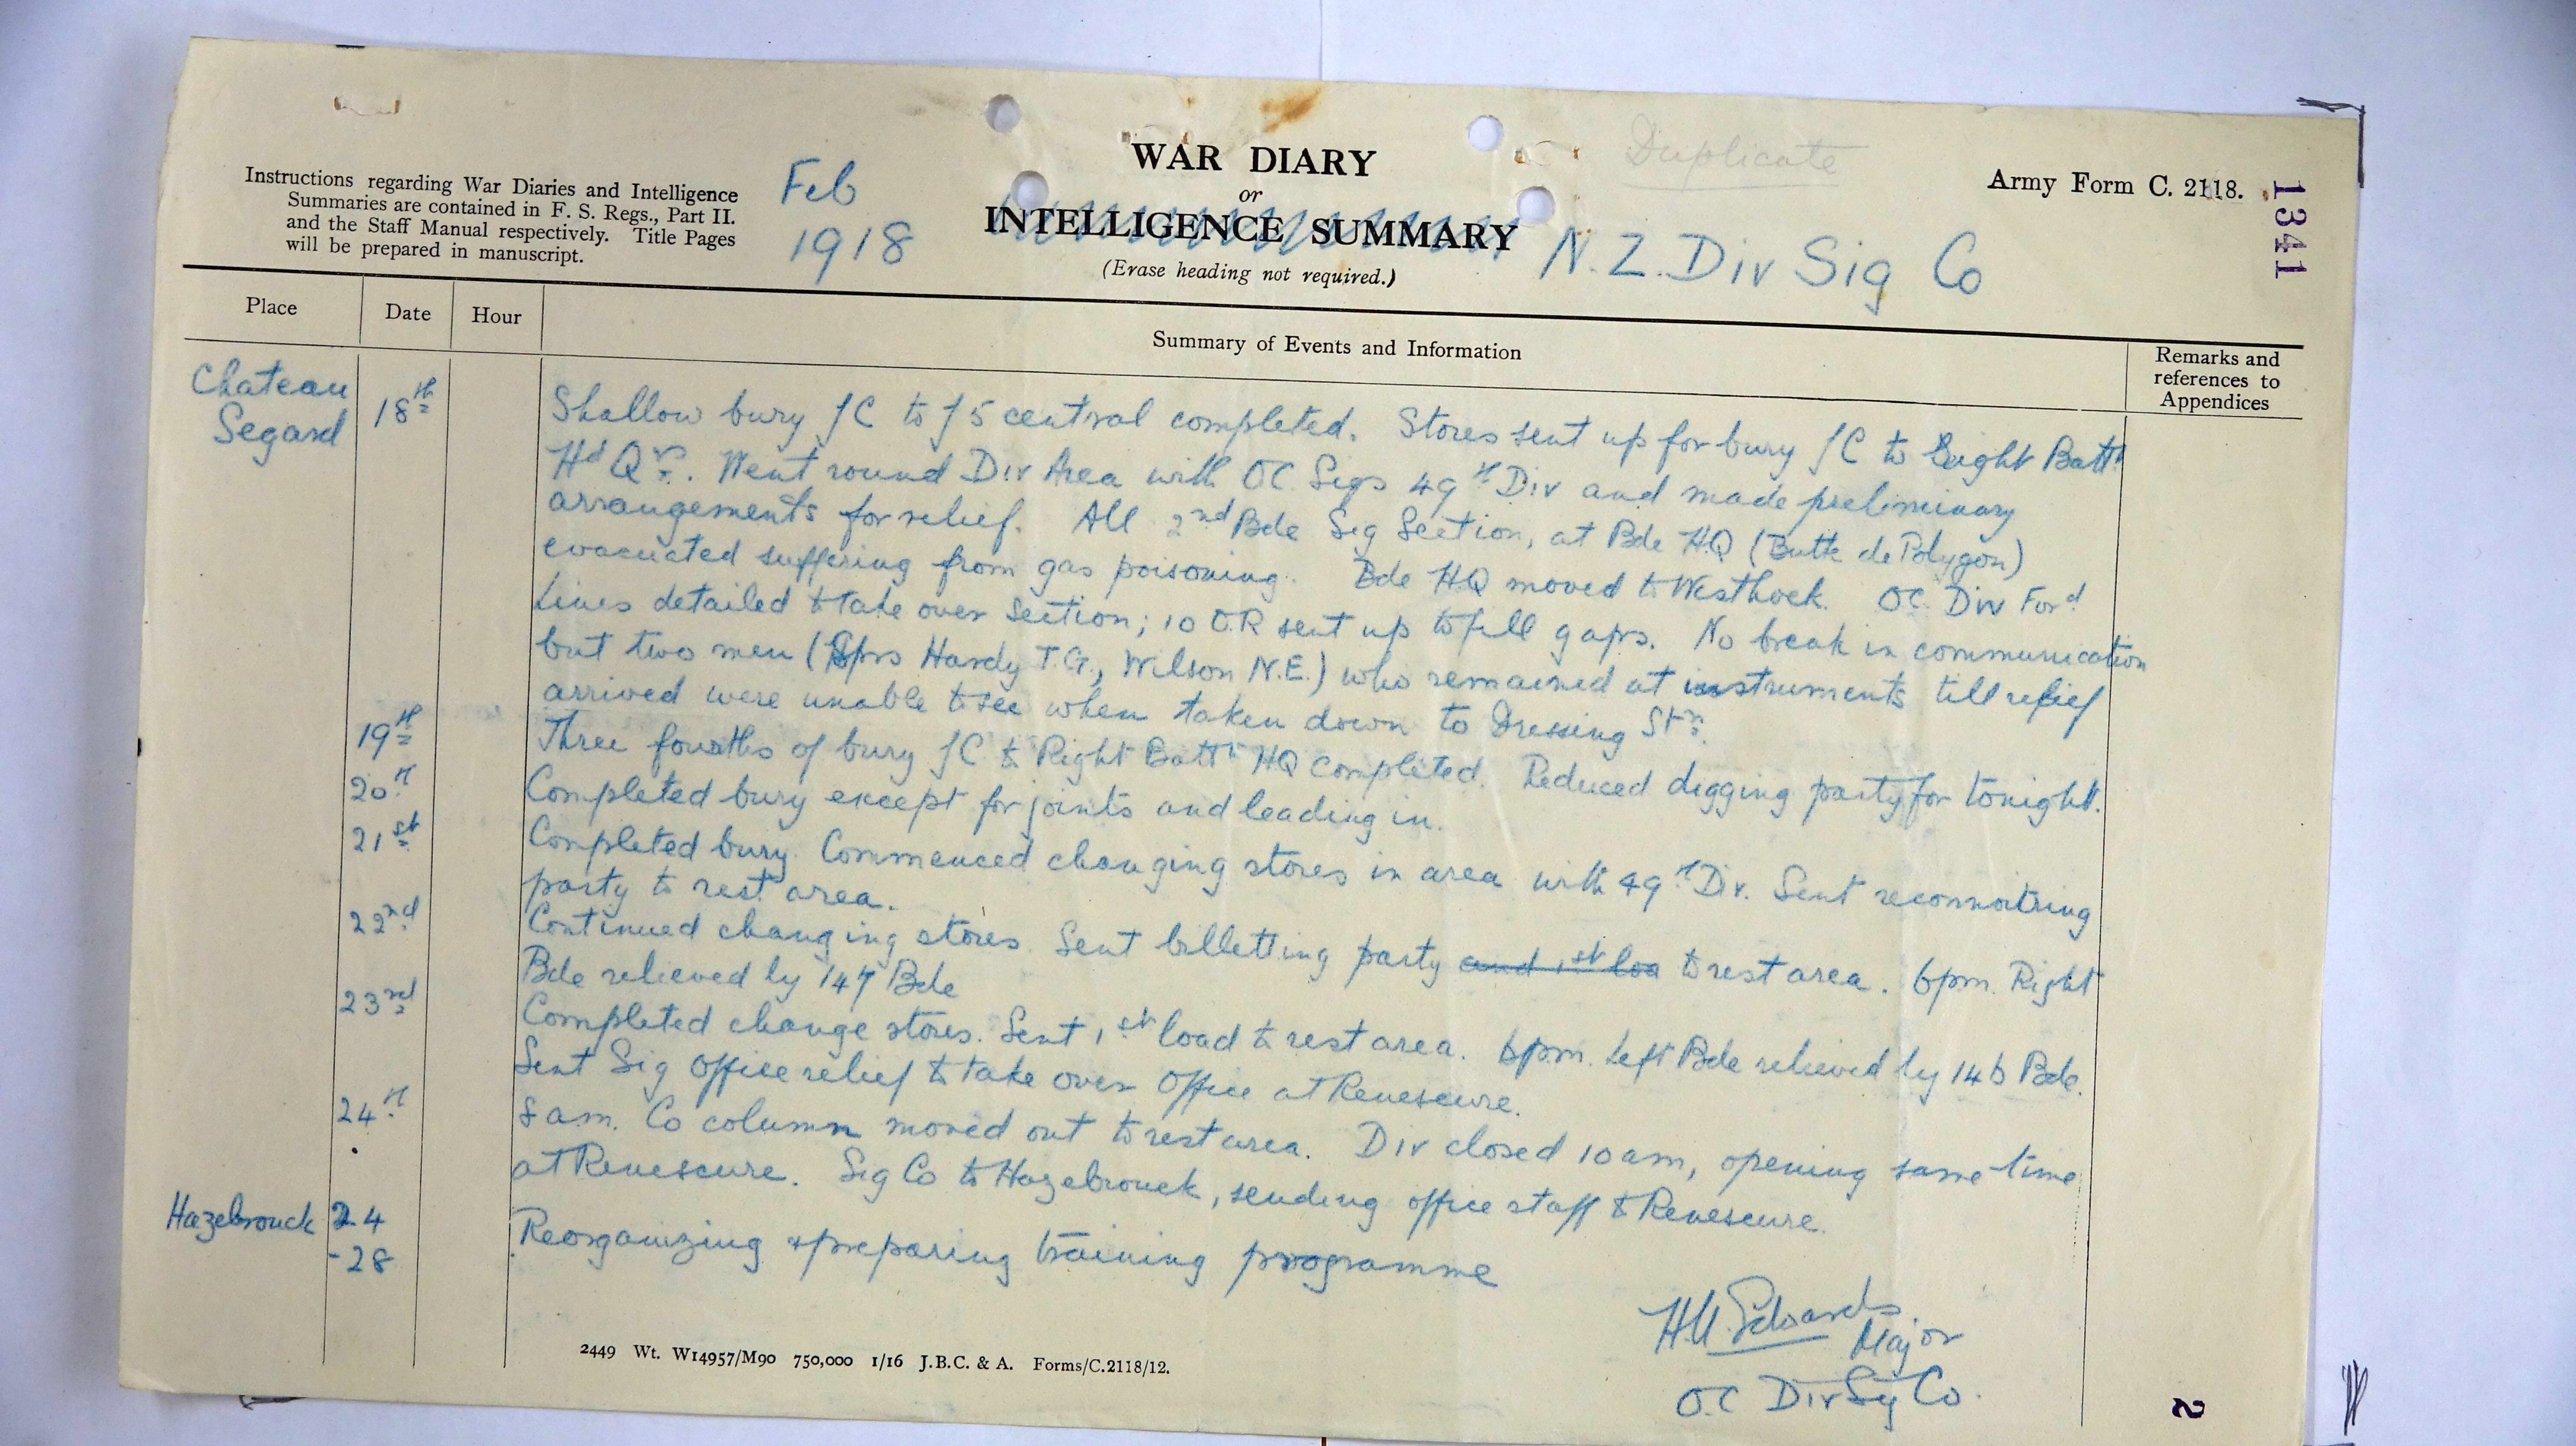 Duplicate
Instructions regarding War Diaries and Intelligence
Summaries are contained in F. S. Regs., Part II.
and the Staff Manual respectively. Title Pages
will be prepared in manuscript.
Feb
1918
WAR DIARY
or
INTELLIGENCE SUMMARY
(Erase heading not required.)
N.Z. Div Sig Co
Army Form C. 2118.
1341
Place Date Hour Summary of Events and Information
Remarks and
references to
Appendices
Chateau
Segard
18th Shallow bury JC to J5 central completed. Stores sent up for bury JC to Right Battn
Hd Qrs. Went round Div Area with OC Sigs 49th Div and made preliminary
arrangements for relief. All 2nd Bde Sig Section, at Bde HQ (Butte de Polygon)
evacuated suffering from gas poisoning. Bde HQ moved to Westhoek. OC Div Ford
Lines detailed to take over section; 10 O.R sent up to fill gaps. No break in communication
but two men (Sprs Hardy T.G., Wilson N.E.) who remained at instruments till relief
arrived were unable to see when taken down to Dressing Stn.
19th Three fourths of bury JC to Right Battn HQ completed. Reduced digging party for tonight.
20th Completed bury except for joints and leading in.
21st Completed bury. Commenced changing stores in area with 49th Div. Sent reconnoitring
party to rest area.
22nd Continued changing stores. Sent billetting party and 1st loa to rest area. 6pm. Right
Bde relieved by 147 Bde
23rd Completed change stores. Sent 1st load to rest area. 6pm. Left Bde relieved by 146 Bde.
Sent Sig Office relief to take over Office at Renescure.
24th 8 am. Co column moved out to rest area. Div closed 10 am, opening same time
at Renescure. Sig Co to Hazebrouck, sending office staff to Renescure.
Hazebrouck 24
-28 Reorganizing & preparing training programme
Edwards
Major
O.C Div Sig Co.
2449 Wt. W14957/M90 750,000 1/16 J.B.C. & A. Forms/C.2118/12.
2